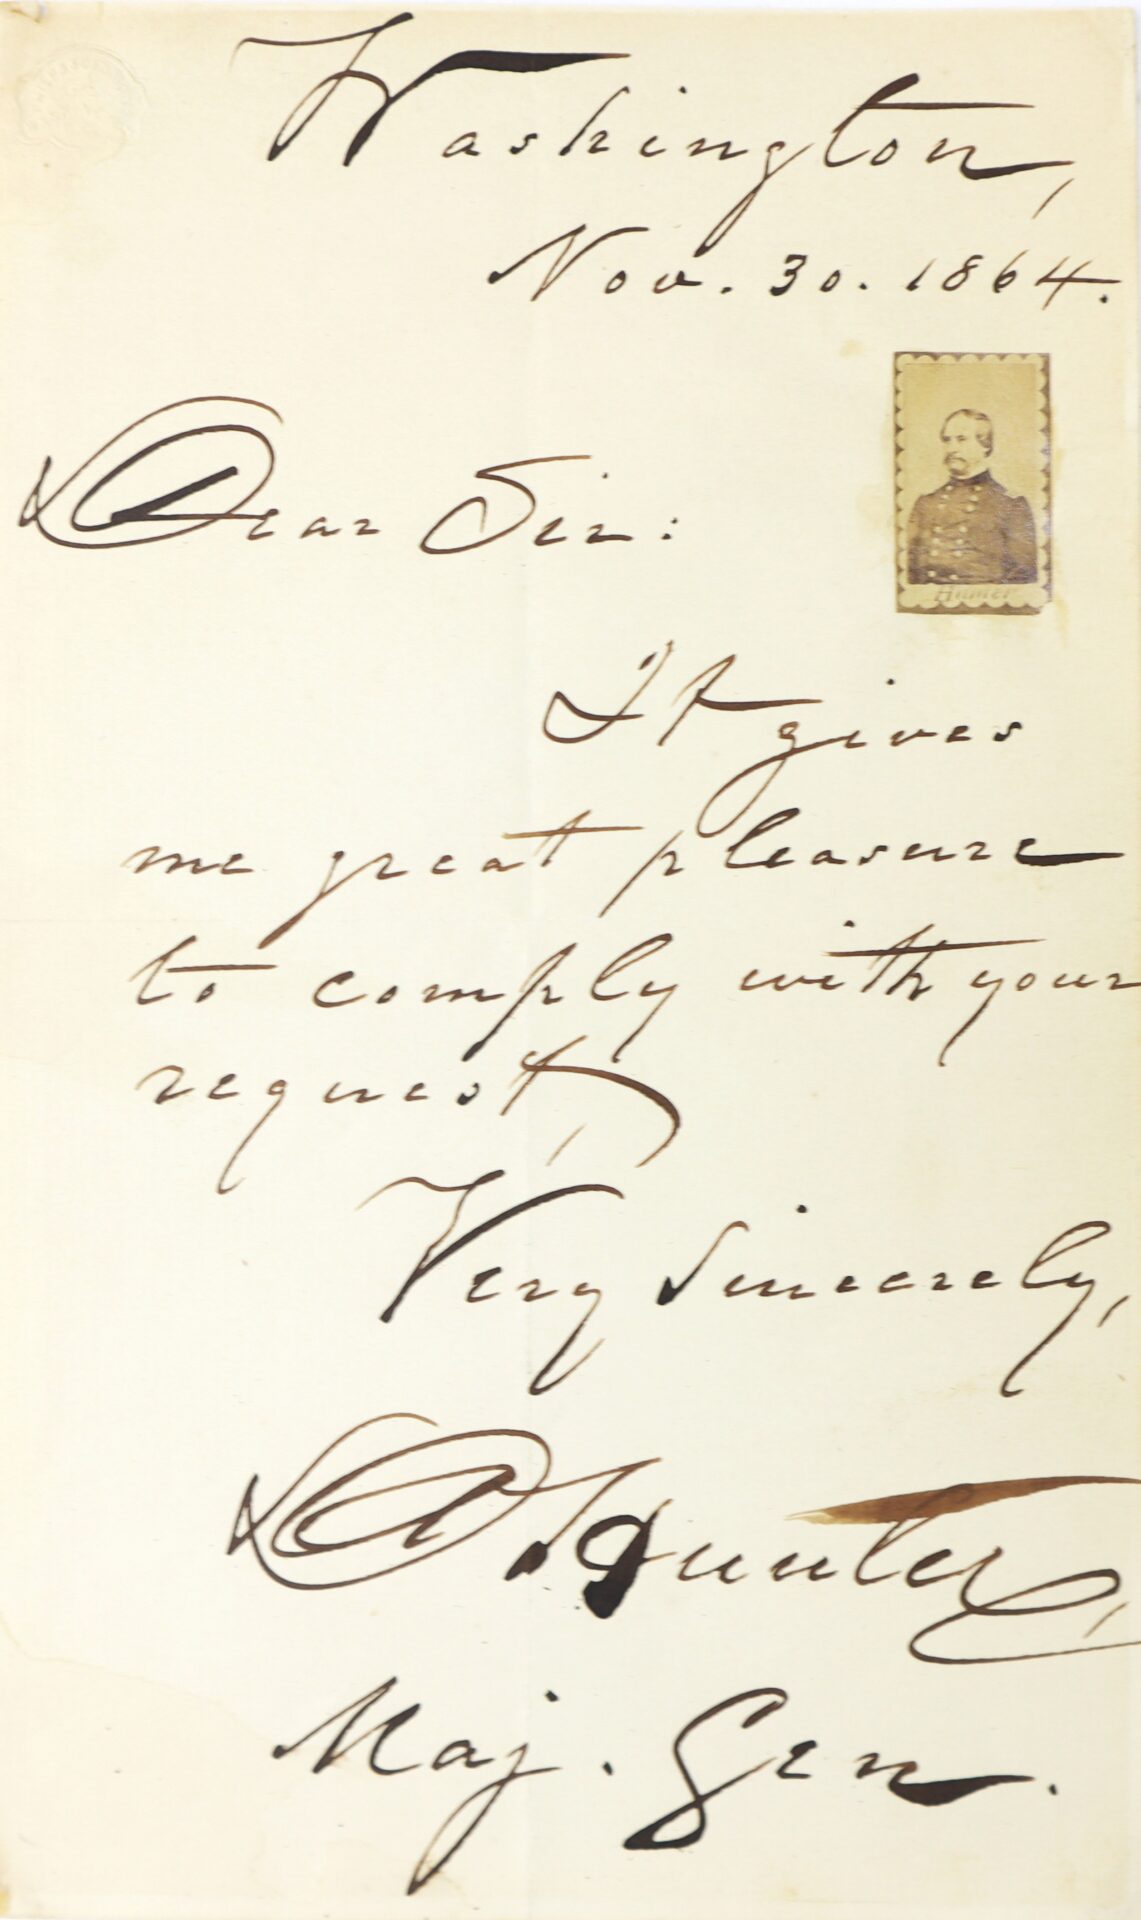 Washington,
Nov. 30. 1864.
Dear Sir:
Hunter
It gives
me great pleasure
to comply with your
request,
Very Sincerely,
D. Hunter,
Maj. Gen.